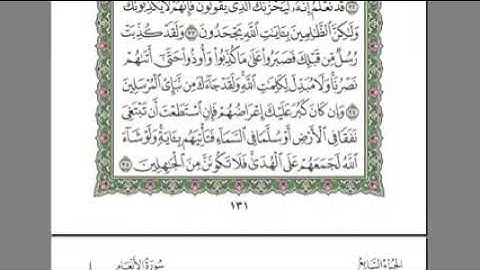 قَدْ نَعْلَمُ إِنَّهُۥ لَيَحْزُنُكَ ٱلَّذِى يَقُولُونَ فَإِنَّهُمْ لَا يُكَذِّبُونَكَ
وَلَٰكِنَّ ٱلظَّٰلِمِينَ بِـَٔايَٰتِ ٱللَّهِ يَجْحَدُونَ ٣٣ وَلَقَدْ كُذِّبَتْ
رُسُلٌ مِّن قَبْلِكَ فَصَبَرُوا۟ عَلَىٰ مَا كُذِّبُوا۟ وَأُوذُوا۟ حَتَّىٰٓ أَتَىٰهُمْ
نَصْرُنَا وَلَا مُبَدِّلَ لِكَلِمَٰتِ ٱللَّهِ وَلَقَدْ جَآءَكَ مِن نَّبَإِى۟ ٱلْمُرْسَلِينَ
٣٤ وَإِن كَانَ كَبُرَ عَلَيْكَ إِعْرَاضُهُمْ فَإِنِ ٱسْتَطَعْتَ أَن تَبْتَغِىَ
نَفَقًا فِى ٱلْأَرْضِ أَوْ سُلَّمًا فِى ٱلسَّمَآءِ فَتَأْتِيَهُم بِـَٔايَةٍ وَلَوْ شَآءَ
ٱللَّهُ لَجَمَعَهُمْ عَلَى ٱلْهُدَىٰ فَلَا تَكُونَنَّ مِنَ ٱلْجَٰهِلِينَ ٣٥
١٣١
الجزء السابع سورة الأنعام